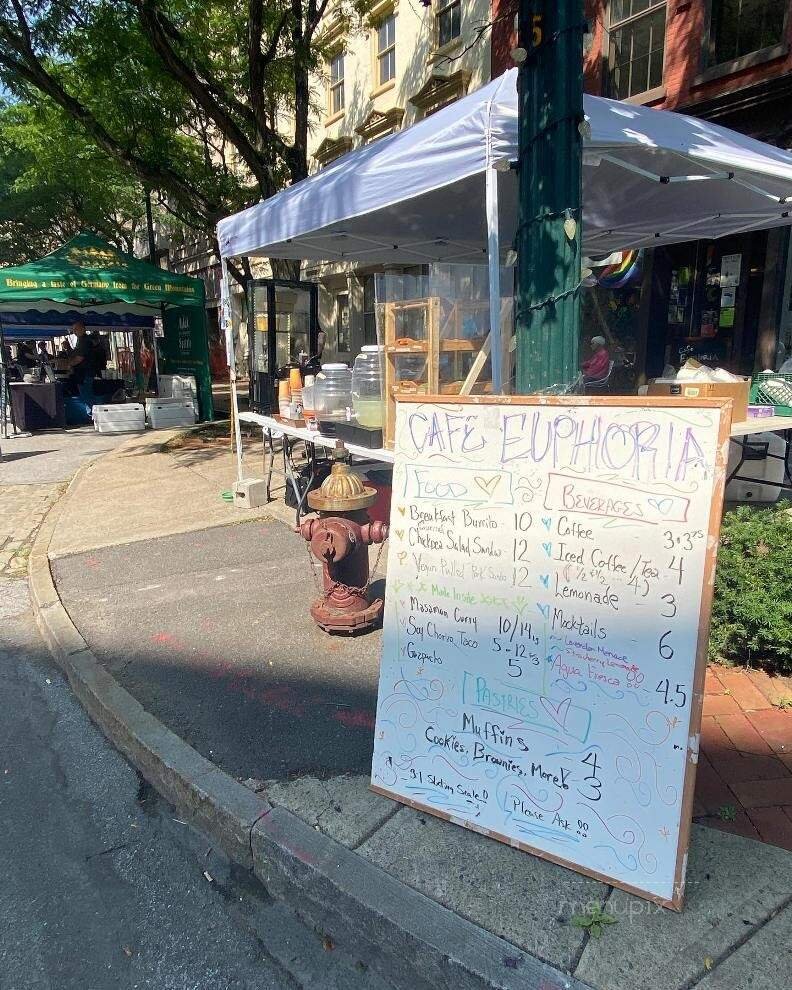 5
Bringing a taste of Germany from the Green Mountains
CAFÉ EUPHORIA
FOOD
Breakfast Burrito 10
Chickpea Salad Sando 12
Vegan Pulled Pork Sando 12
Made Inside
Massaman Curry 10/14
Soy Chorizo Taco 5-12
Gazpacho 5
BEVERAGES
Coffee 3·3.75
Iced Coffee/Tea 4
(½ & ½ ... 4)
Lemonade 3
Mocktails 6
~ Lavender Menace
~ Strawberry Lemonade
Aqua Fresca 4.5
PASTRIES
Muffins 4
Cookies, Brownies, More! 3
3:1 Sliding Scale!!
Please Ask!!
menupix